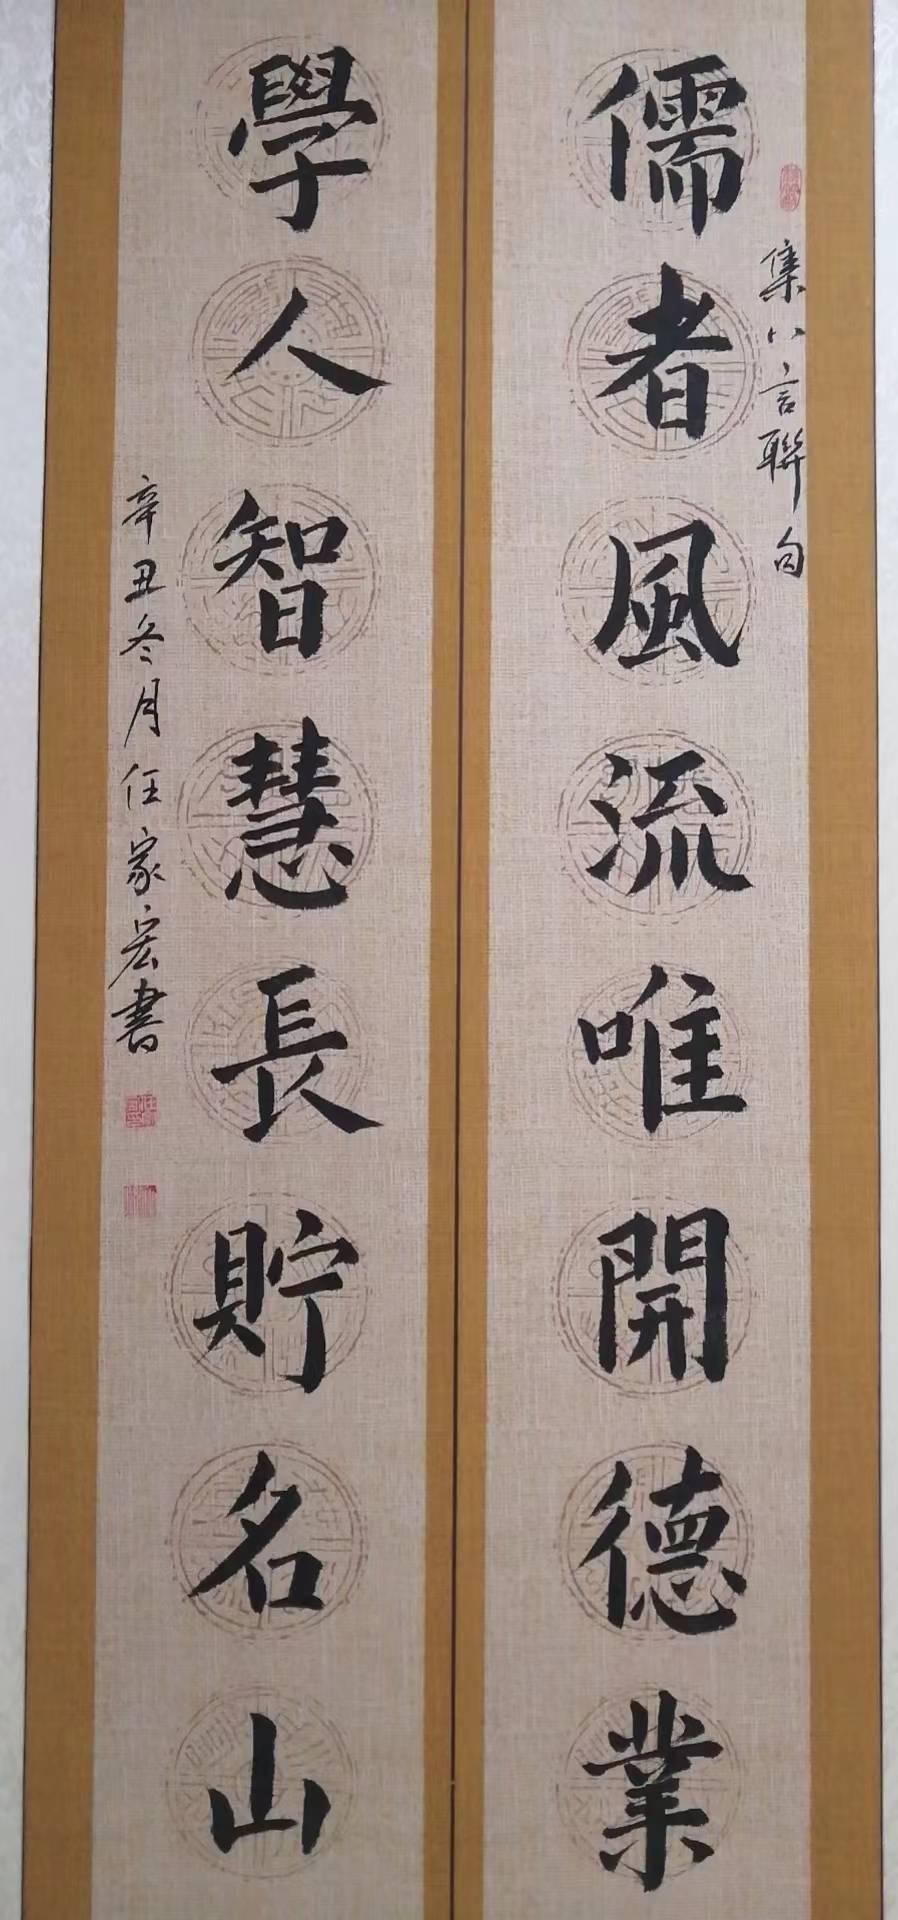 集八言聯句
儒者風流唯開德業
學人智慧長貯名山
辛丑冬月任家宏書